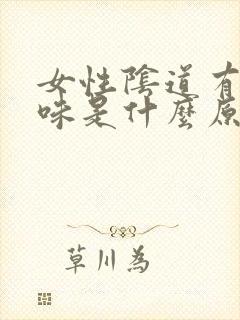 女性陰道有
味是什麼原
草川為